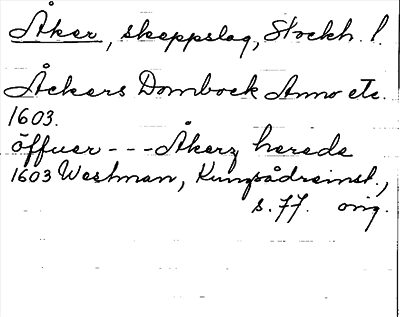 Åker, skeppslag, Stockh. l.
Åckers Dombock Anno etc.
1603.
öffuer --- Åkerz herede
1603 Westman, Kungsådreinst.,
s. 77. orig.